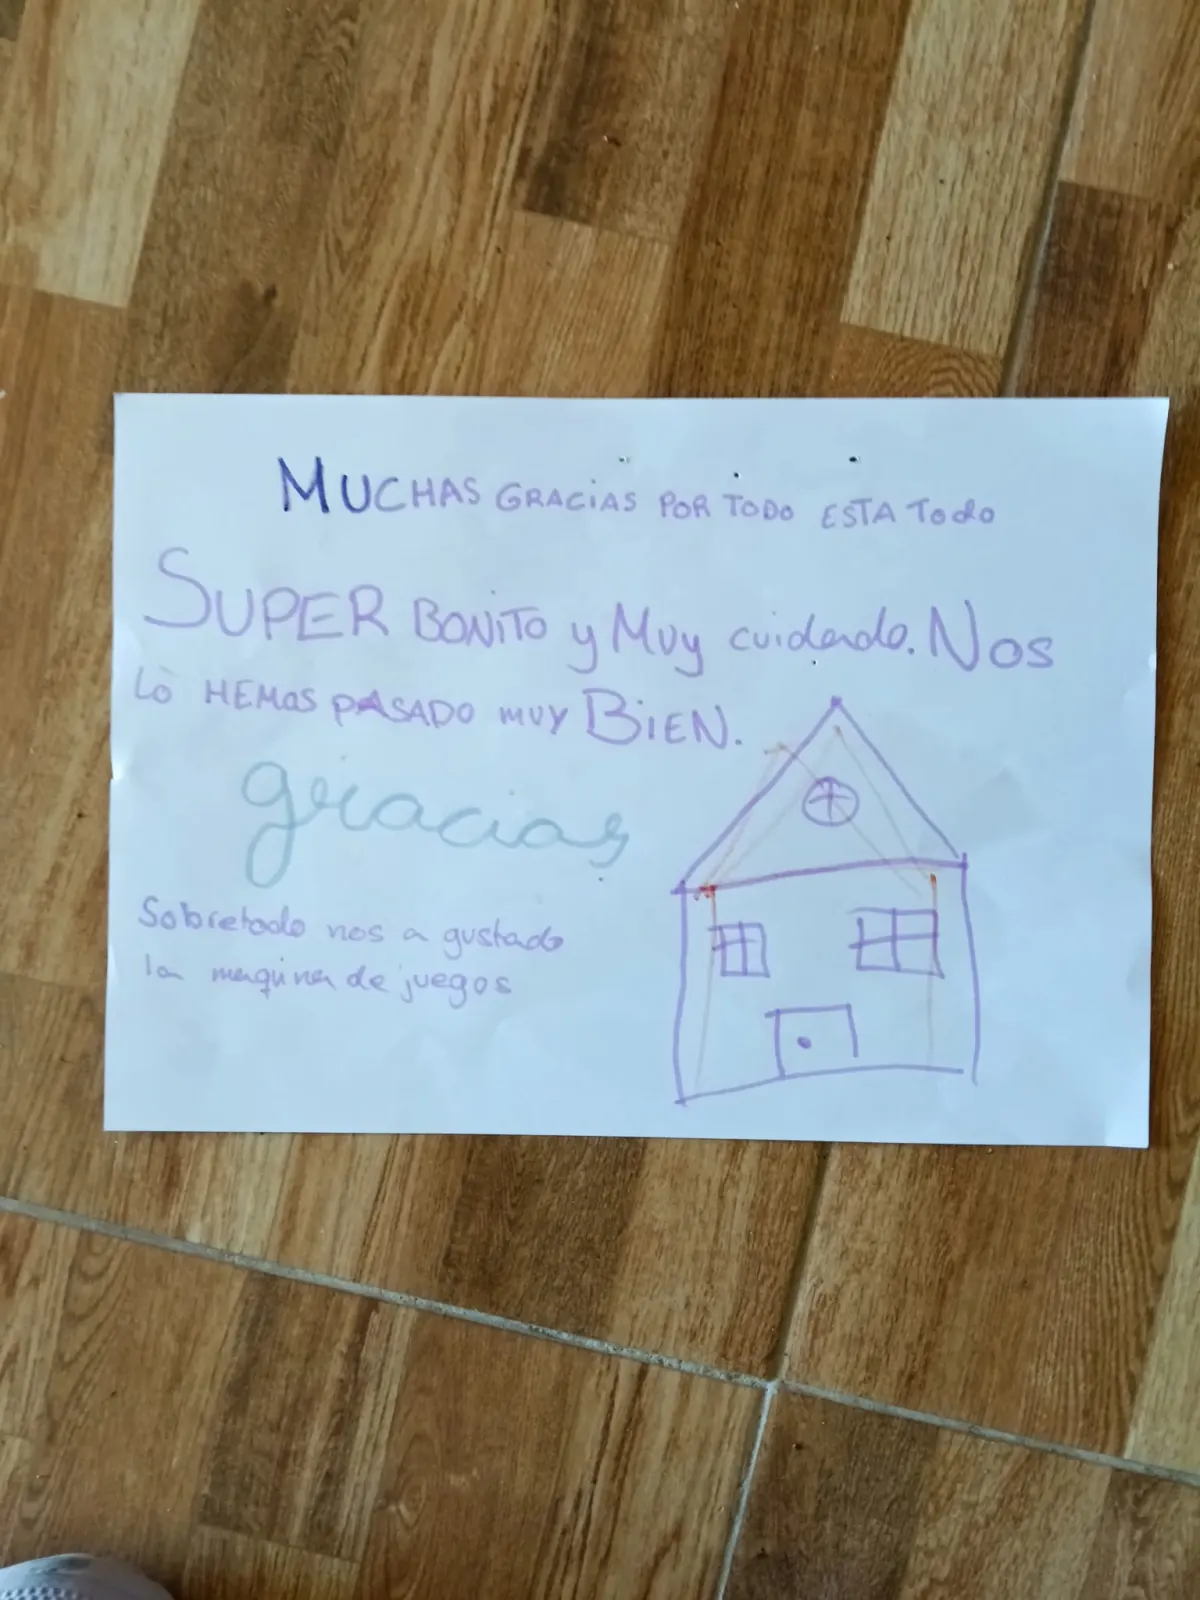 MUCHAS GRACIAS POR TODO ESTA TODO
SUPER BONITO y MUY cuidado. NOS
LO HEMOS PASADO MUY BIEN.
gracias
Sobretodo nos a gustado
la maquina de juegos